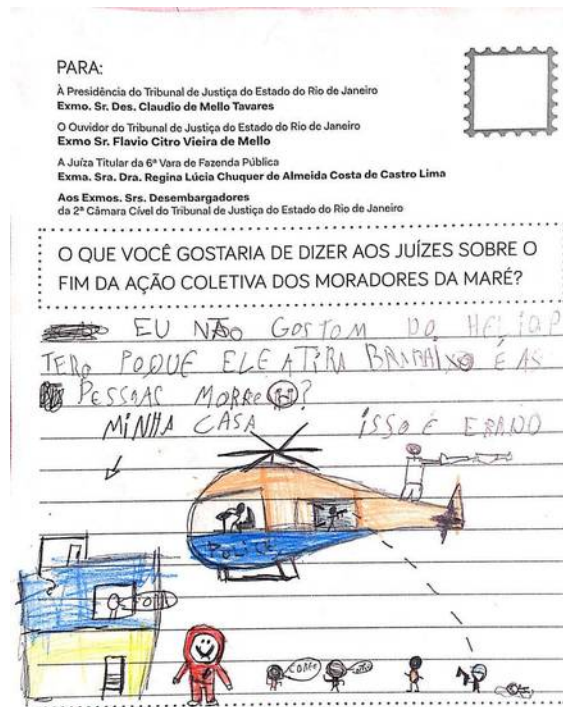 PARA:
À Presidência do Tribunal de Justiça do Estado do Rio de Janeiro
Exmo. Sr. Des. Claudio de Mello Tavares
O Ouvidor do Tribunal de Justiça do Estado do Rio de Janeiro
Exmo Sr. Flavio Citro Vieira de Mello
A Juíza Titular da 6ª Vara de Fazenda Pública
Exma. Sra. Dra. Regina Lúcia Chuquer de Almeida Costa de Castro Lima
Aos Exmos. Srs. Desembargadores
da 2ª Câmara Cível do Tribunal de Justiça do Estado do Rio de Janeiro
O QUE VOCÊ GOSTARIA DE DIZER AOS JUÍZES SOBRE O
FIM DA AÇÃO COLETIVA DOS MORADORES DA MARÉ?
EU NÃO GOSTOM DO HELIOP
TERO POQUE ELE ATIRA É AS
PESSOAS MORRE ?
MINHA CASA ISSO É ERADO
CORRE